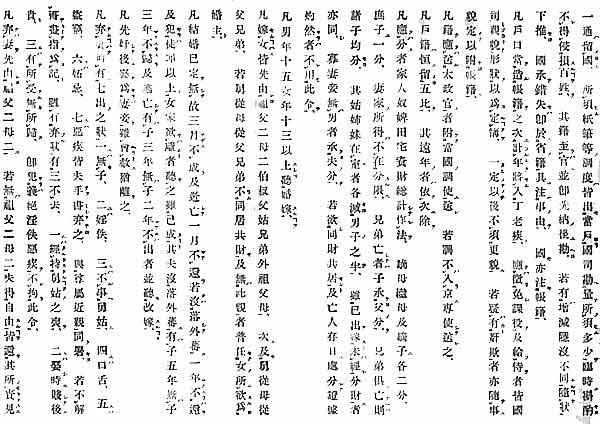 一通留國 所須紙筆等調度皆出當戸國司勘量所須多少臨時斟酌
不得侵損百姓 其籍至官並即先納後勘 若有增減隱沒不同隨狀
下推 國承錯失即於省籍具注事由 國亦注帳籍
凡戸口當造帳籍之次計年將入丁老疾 應徵免課役及給侍者皆國
司親貌形狀以爲定簿 一定以後不須更貌 若疑有奸欺者亦隨事
貌定以附帳籍
凡籍應送太政官者附當國調使送 若調不入京專使送之
凡戸籍恒留五比 其遠年者依次除
凡應分者家人奴婢田宅資財總計作法 嫡母繼母及嫡子各二分
庶子一分 妻家所得不在分限 兄弟亡者子承父分 兄弟俱亡則
諸子均分 其姑姊妹在室者各減男子之半 雖已出嫁未經分財者
亦同 寡妻妾無男者承夫分 若欲同財共居及亡人存日處分證據
灼然者不用此令
凡男年十五女年十三以上聽婚嫁
凡嫁女皆先由祖父二母二伯叔父姑兄弟外祖父母 次及舅從母從
父兄弟 若舅從母從父兄弟不同居共財及無此親者並任女所欲爲
婚主
凡結婚已定無故三月不成及逃亡一月不還若沒落外蕃一年不還
及犯徒罪以上女家欲離者聽之雖已成其夫沒落外蕃有子五年無子
三年不歸及逃亡有子三年無子二年不出者並聽改嫁
凡先奸後娶爲妻妾雖會赦猶離之
凡弃妻須有七出之狀一無子 二婬佚 三不事舅姑 四口舌 五
盜竊 六妬忌 七惡疾皆夫手書弃之 與尊屬近親同署 若不解
書畫指爲記 雖有弃狀有三不去 一經持舅姑之喪 二娶時賤後
貴 三有所受無所歸 即犯義絕淫佚惡疾不拘此令
凡弃妻先由祖父二母二 若無祖父二母二夫得自由皆還其所賚見